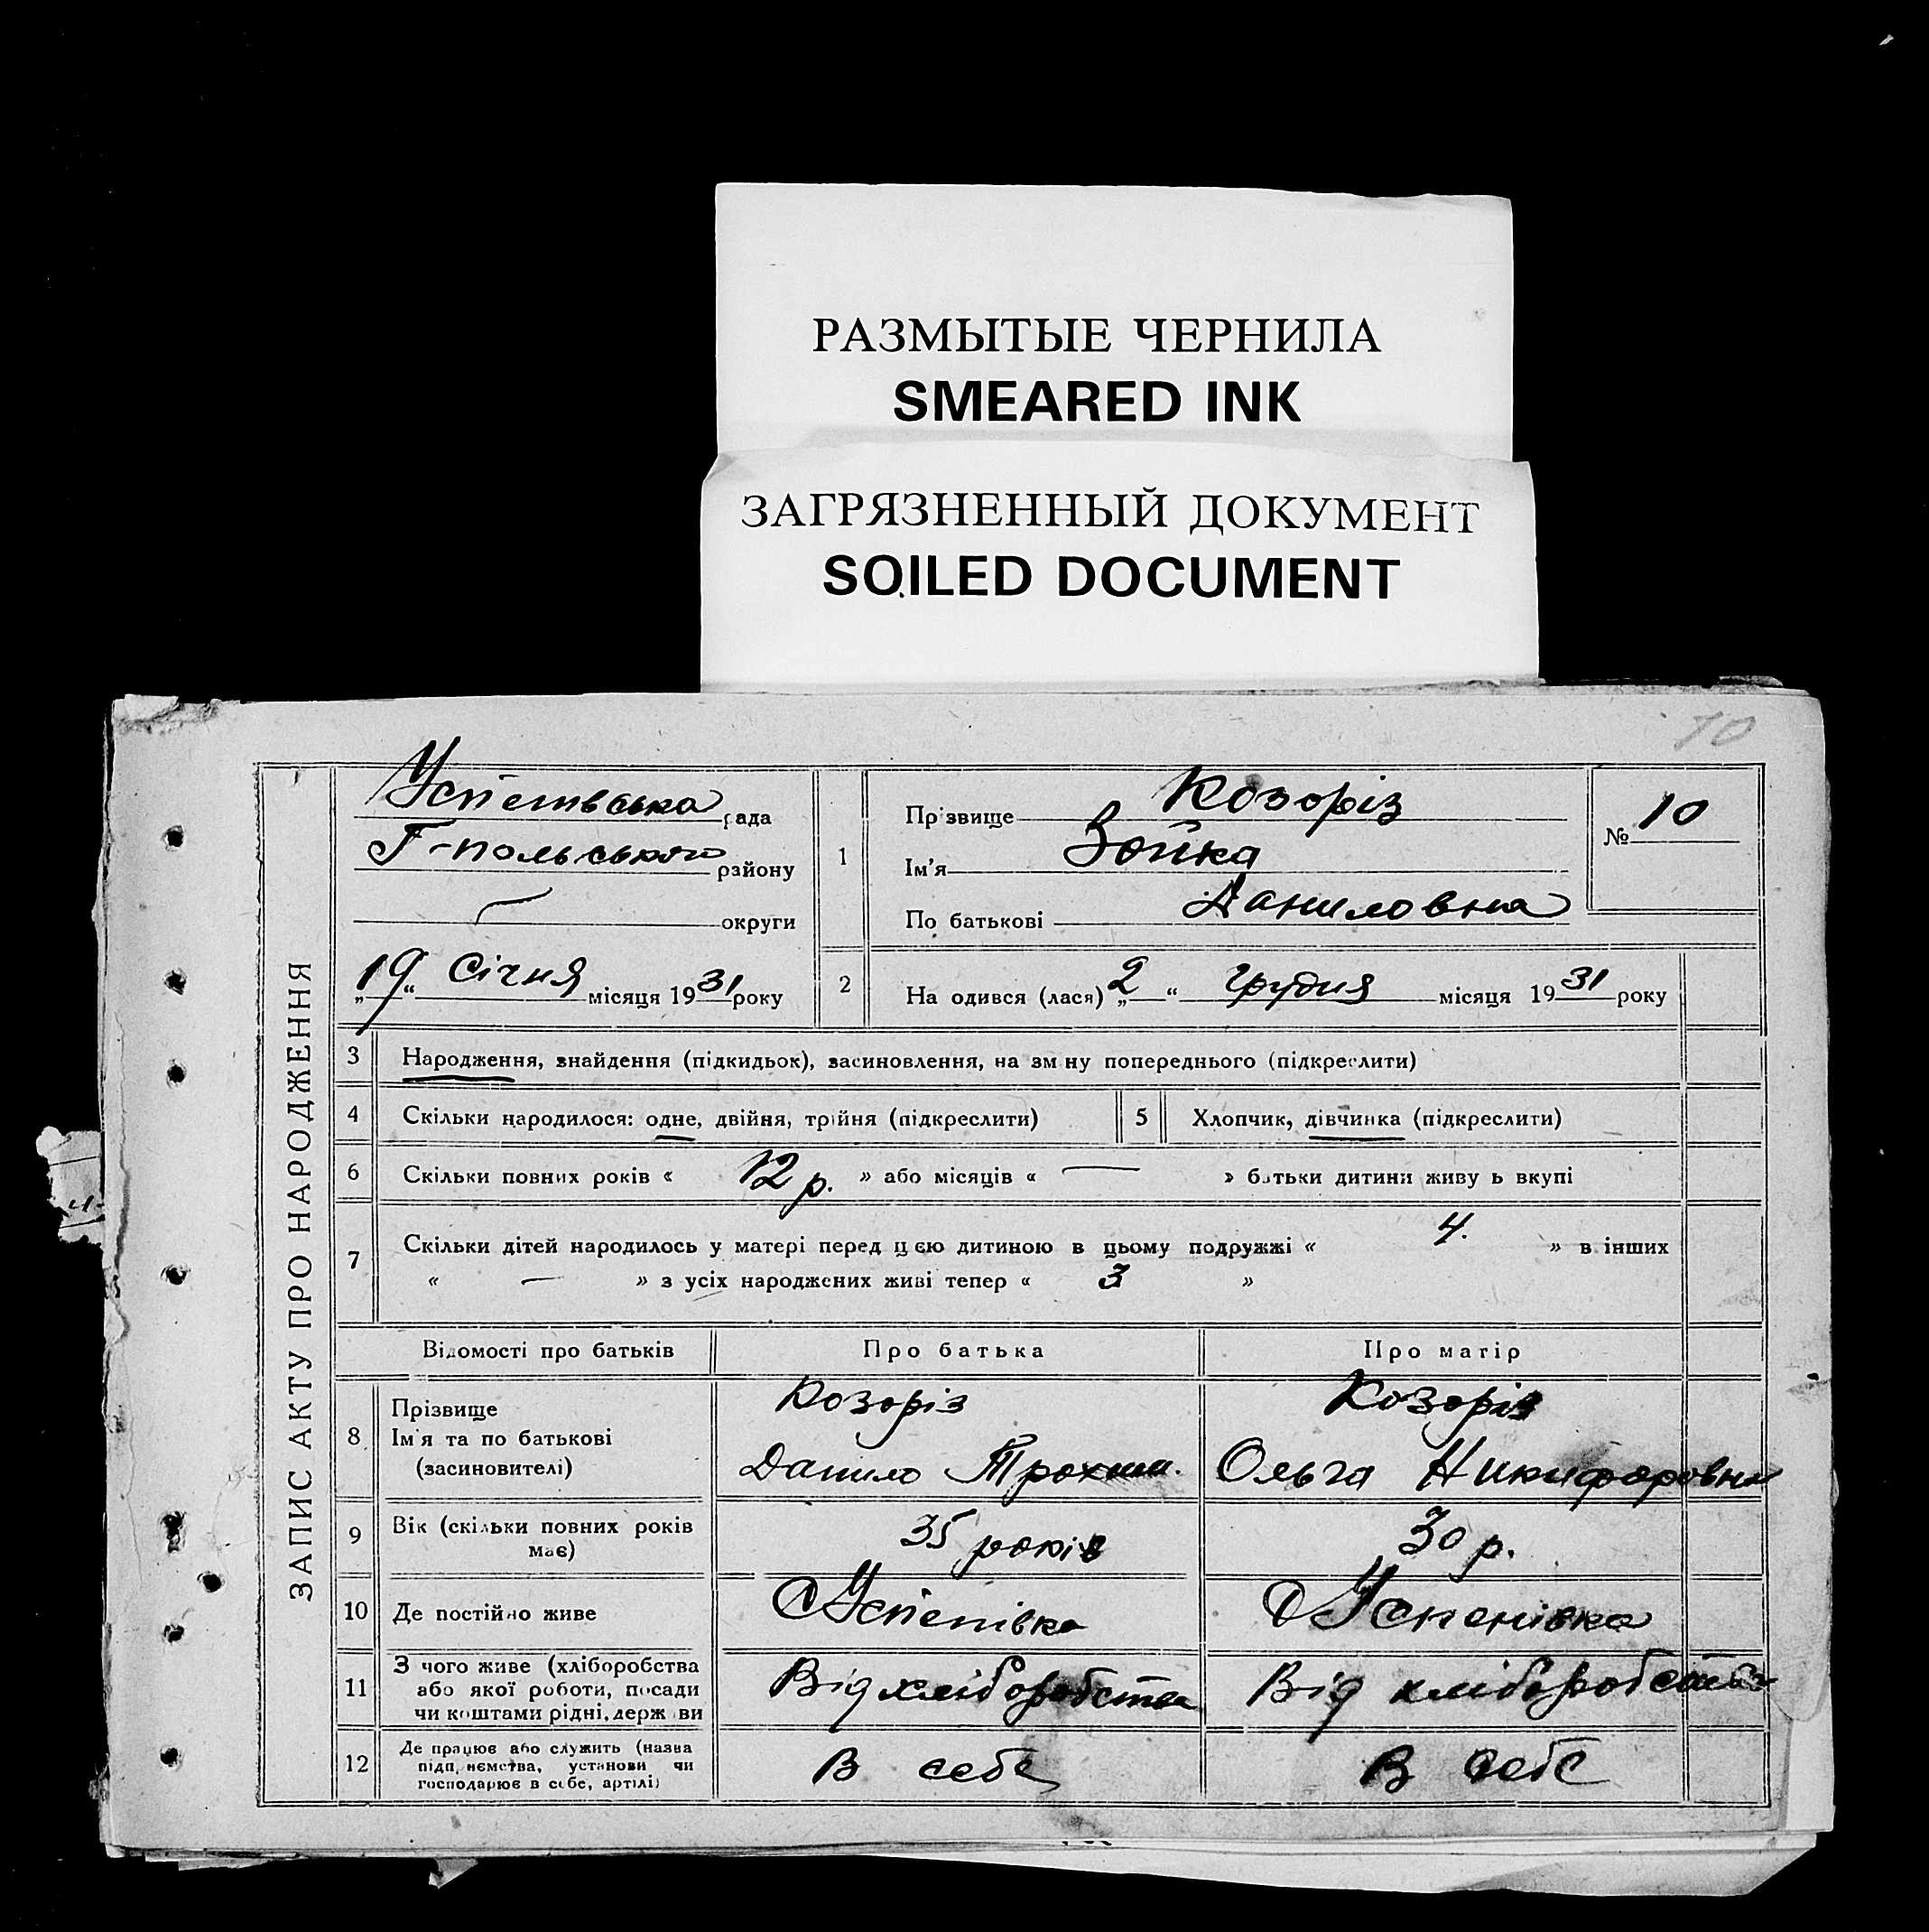 РАЗМЫТЫЕ ЧЕРНИЛА
SMEARED INK
ЗАГРЯЗНЕННЫЙ ДОКУМЕНТ
SOILED DOCUMENT
10
ЗАПИС АКТУ ПРО НАРОДЖЕННЯ
Успенівська рада
Г-польського району
округи
„19“ Січня місяця 1931 року
1
Прізвище Козоріз
Ім'я Зойка
По батькові Даниловна
№ 10
2 На одився (лася) „2“ Грудня місяця 1931 року
3 Народження, знайдення (підкидьок), засиновлення, на зм ну попереднього (підкреслити)
4 Скільки народилося: одне, двійня, трійня (підкреслити) 5 Хлопчик, дівчинка (підкреслити)
6 Скільки повних років « 12 р. » або місяців « — » батьки дитини живу ь вкупі
7 Скільки дітей народилось у матері перед цією дитиною в цьому подружжі « 4. » в інших
« — » з усіх народжених живі тепер « 3 »
Відомості про батьків Про батька Про матір
8 Прізвище Козоріз Козоріз
Ім'я та по батькові
(засиновителі) Данило Трохим. Ольга Никифоровна
9 Вік (скільки повних років
має) 35 років 30 р.
10 Де постійно живе С Успенівка С Успенівка
11 З чого живе (хліборобства
або якої роботи, посади
чи коштами рідні, держ ви Від хліборобства Від хліборобства
12 Де працює або служить (назва
підп, иємства, установи чи
господарює в себе, артілі) В себе В себе